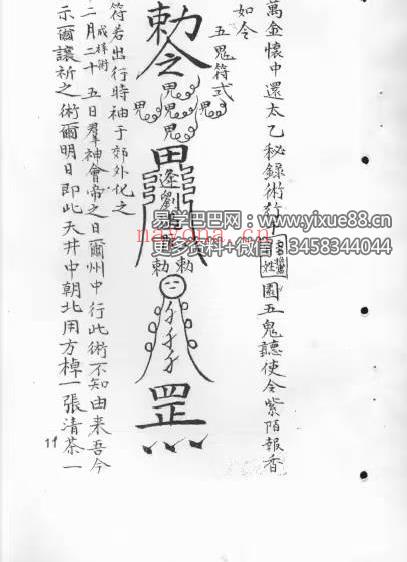 萬金懷中還太乙秘錄術行
姓
園五鬼聽使令紫陌報香
如令
五鬼符式
勅令
鬼
鬼 鬼 鬼
鬼
鬼
逢
勅 勅
罡
符若出行時袖于郊外化之
成祥術
二月二十五日羣神會帝之日爾州中行此術不知由来吾今
示爾讓祈之術爾明日即此天井中朝北用方棹一張清茶一
11
易学巴巴网 www.yixue88.cn
资料+微信 3458344044
nayona.cn